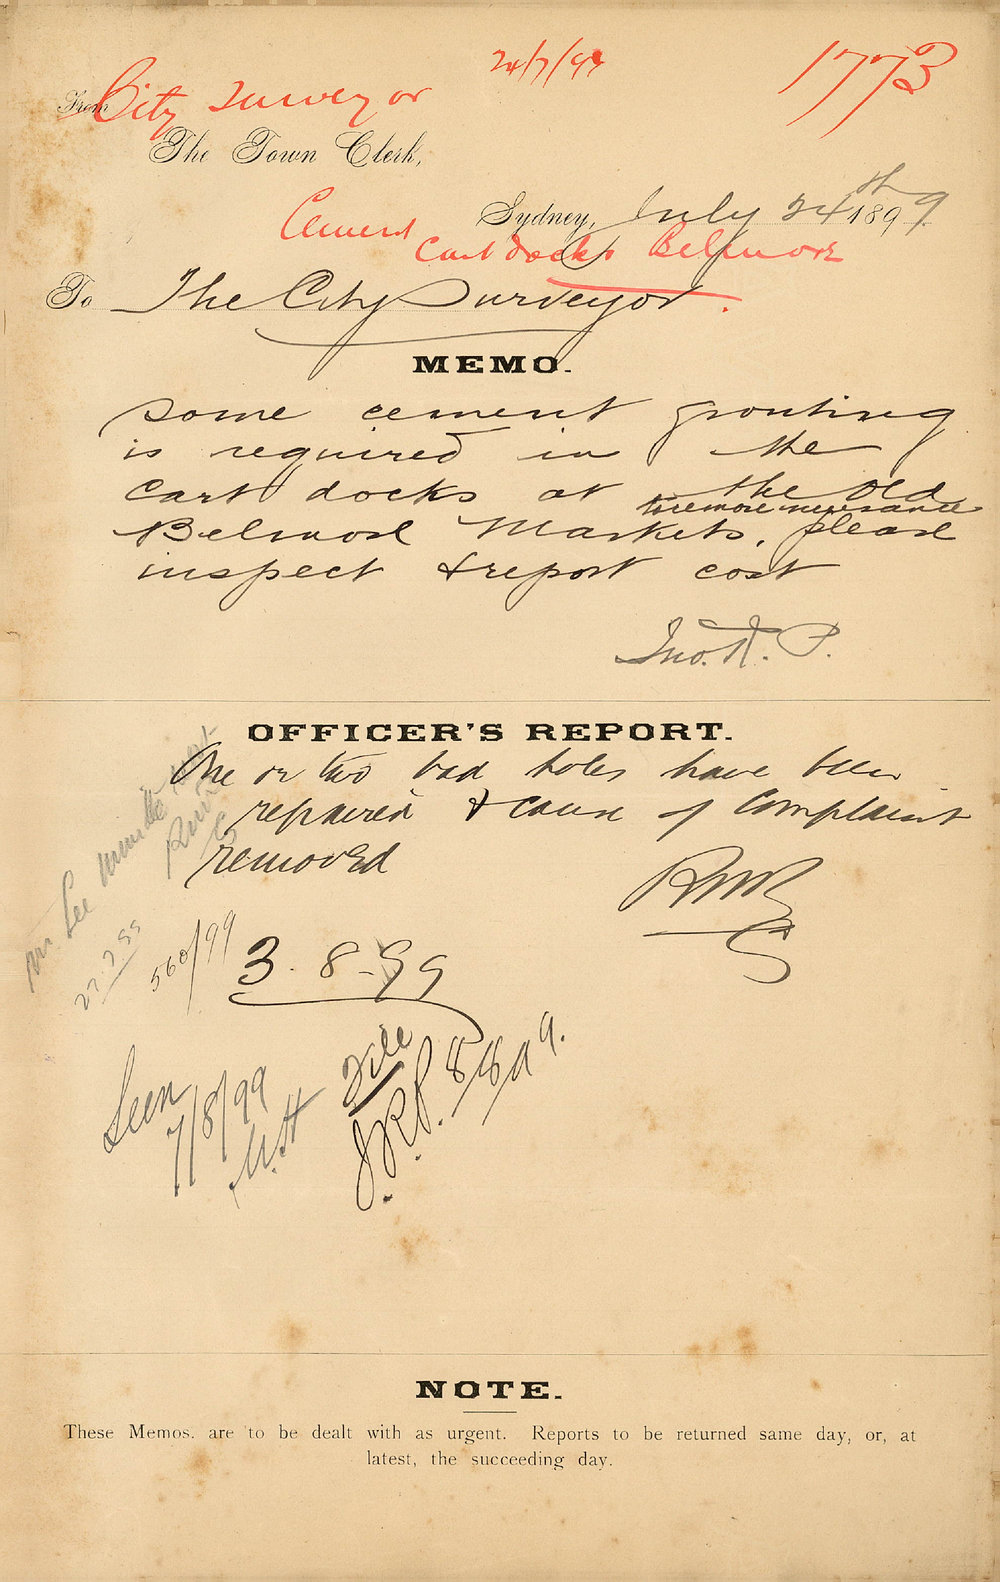 24/7/99
1773
City Surveyor
From
The Town Clerk,
Sydney, July 24th 1899.
Cement
Cart docks Belmore
To The City Surveyor.
MEMO.
Some cement grouting
is required in the
cart docks at the old
to remove nuisance
Belmore Markets, please
inspect & report cost
Jno. R. P.
OFFICER'S REPORT.
One or two bad holes have been
repaired & cause of complaint
removed
RWR
3.8.99
Mr Lee
27.7.99
560/99
Seen
7/8/99
File
J.R.P. 8/8/99.
NOTE.
These Memos. are to be dealt with as urgent. Reports to be returned same day, or, at
latest, the succeeding day.